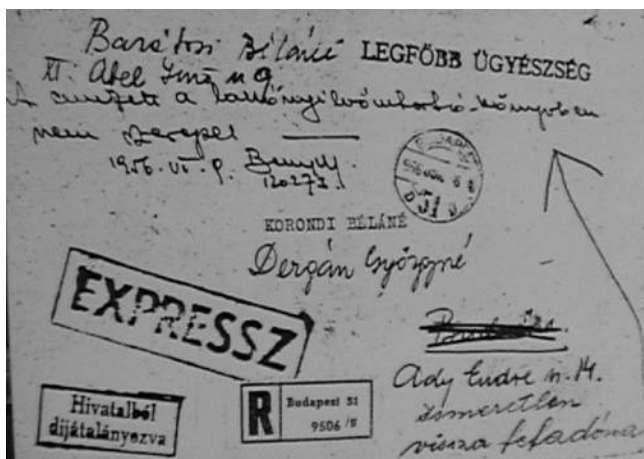 Barátosi Béláné LEGFŐBB ÜGYÉSZSÉG
XI. Abel Jenő u 9
A címzett a lakónyilvántartó könyvben
nem szerepel
1956. VI. 9.
120273.
KORONDI BÉLÁNÉ
Dergán Györgyné
EXPRESSZ
Ady Endre u. 14.
Ismeretlen
vissza feladóna
Hivatalból
díjátalányozva
R
Budapest 51
9506